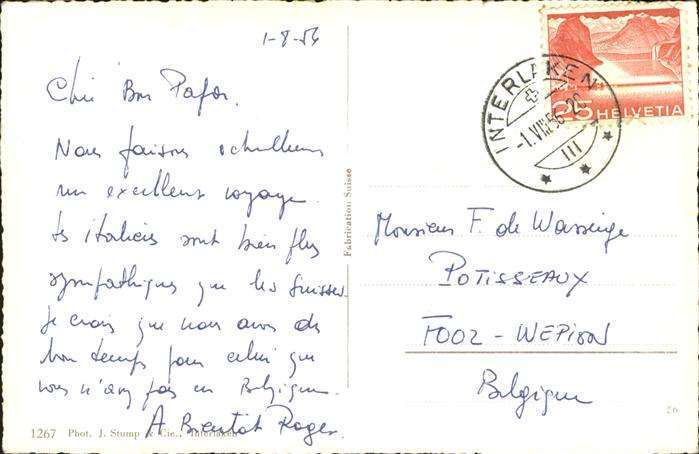 1-8-56
Cher Bon Papa.
Nous faisons
un excellent voyage
Les italiens sont bien plus
sympathiques que les suisses.
Je crois que nous avons du
bon temps pour celui que
vous n'avez pas en Belgique.
A Bientôt Roger.
1267 Phot. J. Stump & Cie., Interlaken
Fabrication Suisse
INTERLAKEN
-1.VIII.56-
III
25 HELVETIA
Monsieur F. de Wasseige
POTISSEAUX
FOOZ - WEPION
Belgique
26